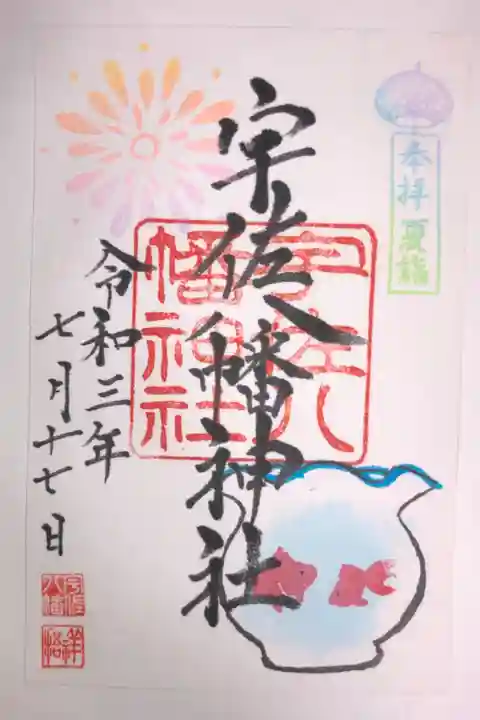 奉拝 夏詣
宇佐八幡神社
宇佐八
幡神社
令和三年
七月十七日
宇佐
八幡